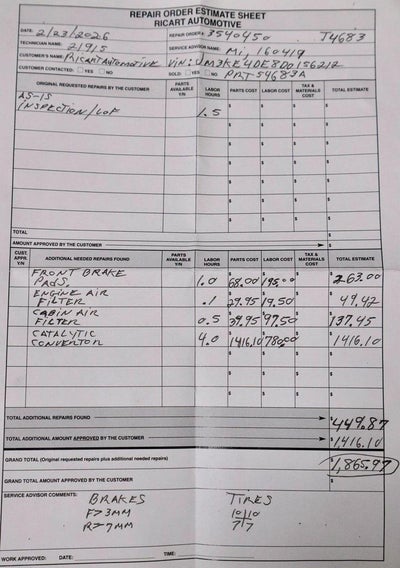 REPAIR ORDER ESTIMATE SHEET
RICART AUTOMOTIVE
DATE: 2/23/2026 REPAIR ORDER# 3540450 J4683
TECHNICIAN NAME: 21915 SERVICE ADVISOR NAME: Mi, 160419
CUSTOMER'S NAME: Ricart Automotive VIN: JM3KE4DE8D0156212
CUSTOMER CONTACTED: YES NO SOLD: YES NO PRT 54683A
ORIGINAL REQUESTED REPAIRS BY THE CUSTOMER PARTS AVAILABLE Y/N LABOR HOURS PARTS COST LABOR COST TAX & MATERIALS COST TOTAL ESTIMATE
AS-IS
INSPECTION/LOF 1.5 $ $ $ $
TOTAL $
AMOUNT APPROVED BY THE CUSTOMER $
CUST. APPR. Y/N ADDITIONAL NEEDED REPAIRS FOUND PARTS AVAILABLE Y/N LABOR HOURS PARTS COST LABOR COST TAX & MATERIALS COST TOTAL ESTIMATE
FRONT BRAKE
PADS. 1.0 $68.00 $195.00 $ $263.00
ENGINE AIR
FILTER .1 $29.95 $19.50 $ $49.42
CABIN AIR
FILTER 0.5 $39.95 $97.50 $ $137.45
CATALYTIC
CONVERTOR 4.0 $1416.10 $780.00 $ $1416.10
TOTAL ADDITIONAL REPAIRS FOUND $449.87
TOTAL ADDITIONAL AMOUNT APPROVED BY THE CUSTOMER $1,416.10
GRAND TOTAL (Original requested repairs plus additional needed repairs) $1,865.97
GRAND TOTAL AMOUNT APPROVED BY THE CUSTOMER $
SERVICE ADVISOR COMMENTS: BRAKES TIRES
F>3MM 10/10
R>7MM 7/7
WORK APPROVED: DATE: TIME: